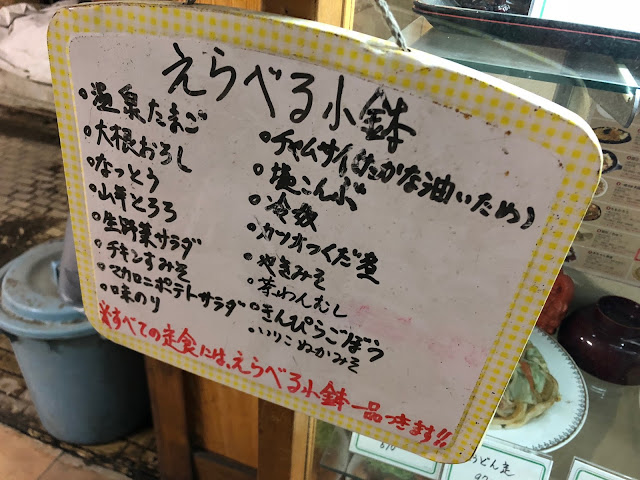 えらべる小鉢
・温泉たまご
・大根おろし
・なっとう
・山芋とろろ
・生野菜サラダ
・チキンすみそ
・マカロニポテトサラダ
・味のり
・チャムサイ(たかな油いため)
・塩こんぶ
・冷奴
・カツオつくだ煮
・やきみそ
・茶わんむし
・きんぴらごぼう
・いりこぬかみそ
※すべての定食には、えらべる小鉢一品つきます!!
670
うどん定